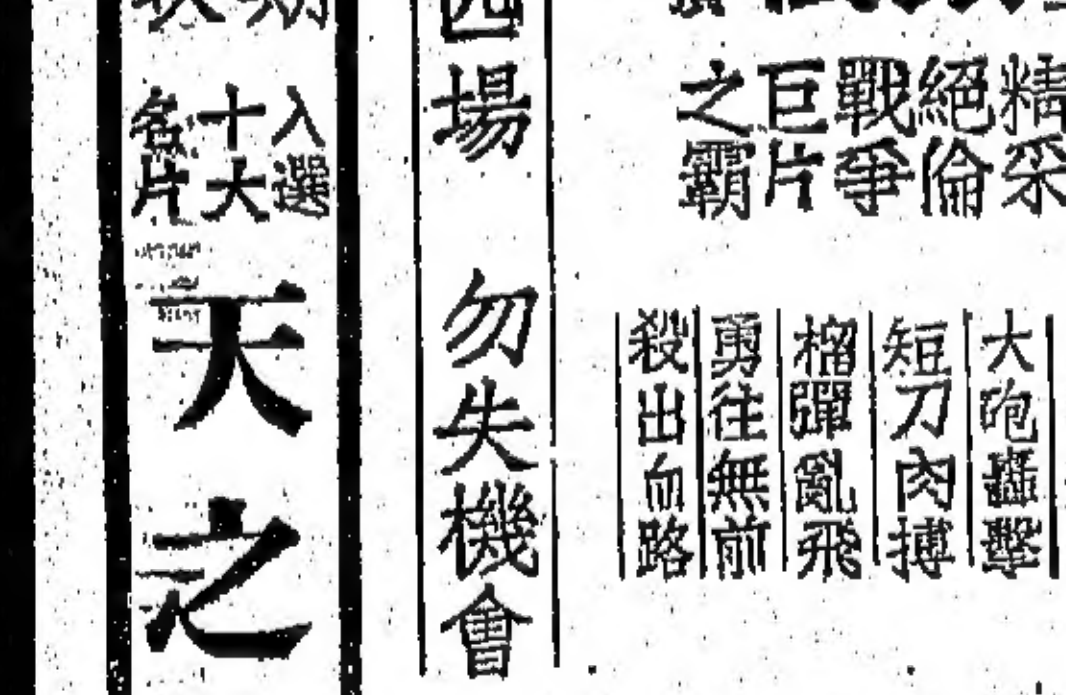 精采
絕倫
戰爭
巨片
之霸
大砲轟擊
短刀肉搏
榴彈亂飛
勇往無前
殺出血路
四場 勿失機會
入選
十大
名片
天之